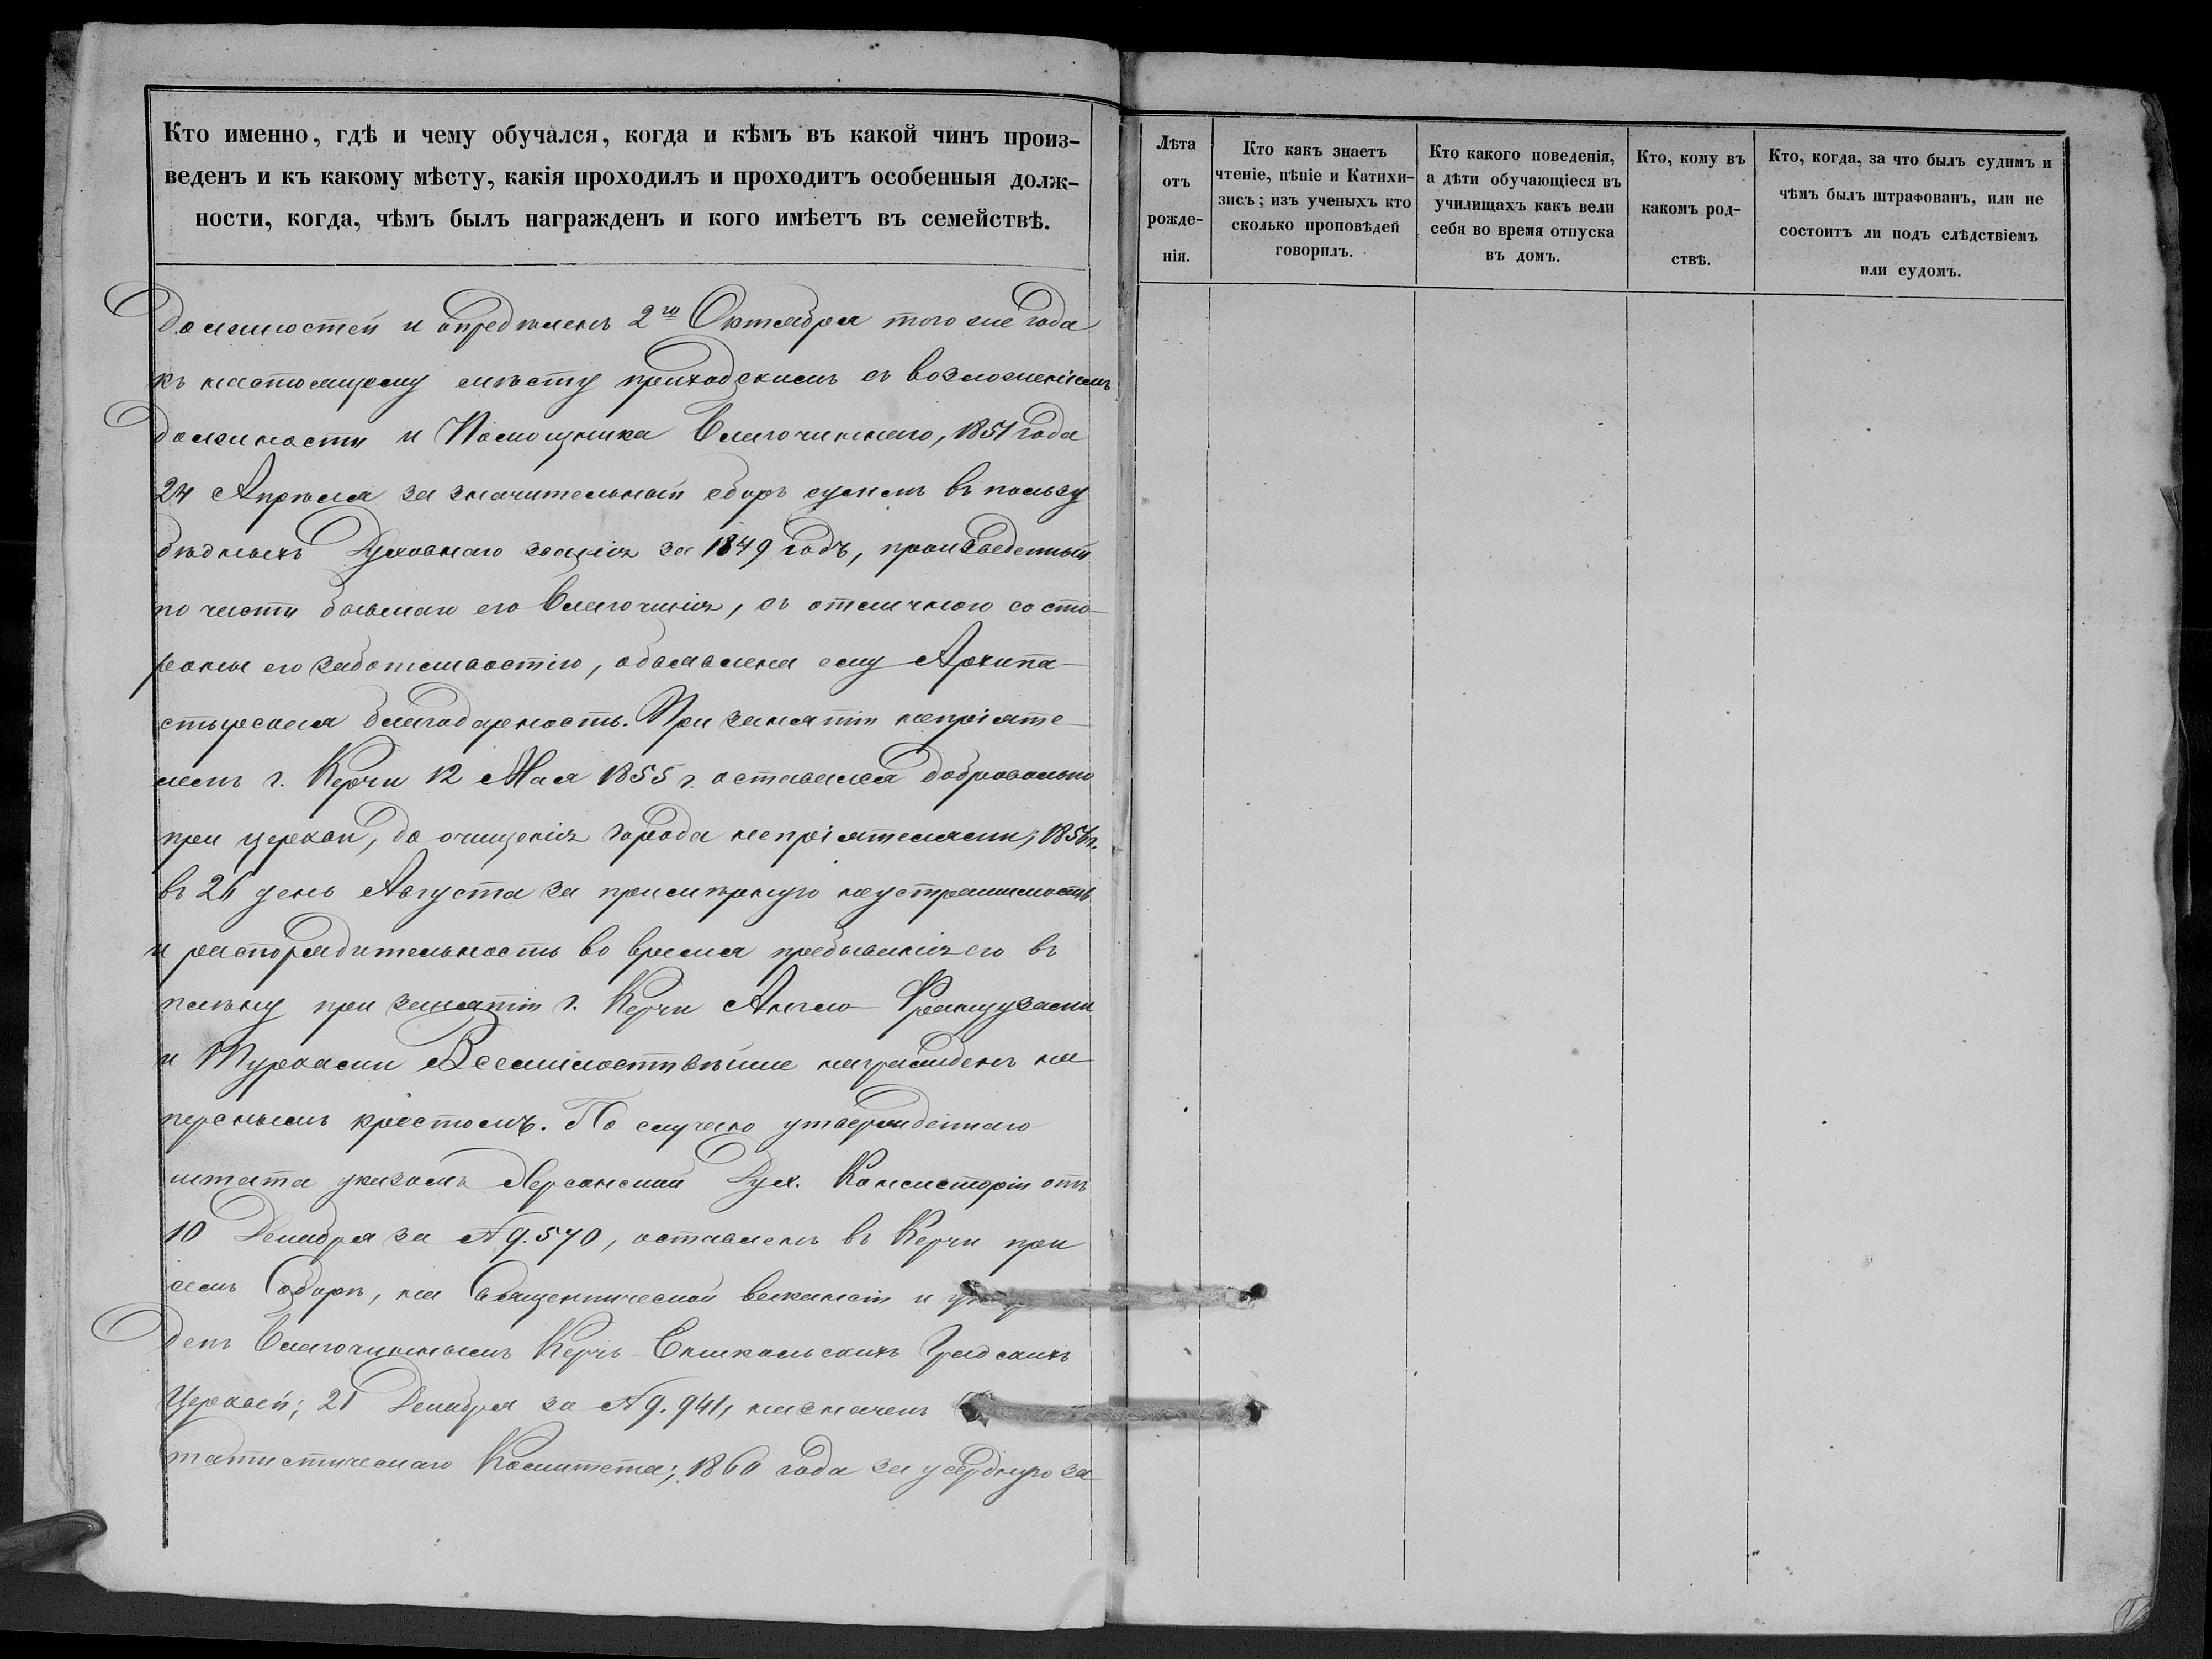 Кто именно, гдѣ и чему обучался, когда и кѣмъ въ какой чинъ произ-
веденъ и къ какому мѣсту, какія проходилъ и проходитъ особенныя долж-
ности, когда, чѣмъ былъ награжденъ и кого имѣетъ въ семействѣ.
должностей и опредѣленъ 2го Октября того же года
къ настоящему мѣсту приходскимъ съ возложеніемъ
должности и Помощника Благочиннаго, 1851 года
24 Апрѣля за значительный сборъ суммъ въ пользу
бѣдныхъ Духовнаго званія за 1849 годъ, произведенный
по части бывшаго его благочинія, съ отличною со сто-
роны его заботливостію, объявлена ему Архипа-
стырская благодарность. При занятіи непріяте-
лемъ г. Керчи 12 Мая 1855 г. оставался добровольно
при церкви, до очищенія города непріятелями; 1856 г.
въ 26 день Августа за примѣрную неустрашимость
и распорядительность во время пребыванія его въ
плѣну при занятіи г. Керчи Англо-Французами
и Турками Всемилостивѣйше награжденъ на
перснымъ крестомъ. По случаю утвержденнаго
штата указомъ Херсонской Дух. Консисторіи отъ
10 Декабря за № 9.570, оставленъ въ Керчи при
семъ Соборѣ, на Священнической вакансіи и
денъ Благочиннымъ Керчь-Еникальскихъ Градскихъ
Церквей; 21 Декабря за № 9.941, назначенъ
татистическаго Комитета; 1860 года за усердную за
Лѣта
отъ
рожде-
нія.
Кто какъ знаетъ
чтеніе, пѣніе и Катихи-
зисъ; изъ ученыхъ кто
сколько проповѣдей
говорилъ.
Кто какого поведенія,
а дѣти обучающіеся въ
училищахъ какъ вели
себя во время отпуска
въ домъ.
Кто, кому въ
какомъ род-
ствѣ.
Кто, когда, за что былъ судимъ и
чѣмъ былъ штрафованъ, или не
состоитъ ли подъ слѣдствіемъ
или судомъ.